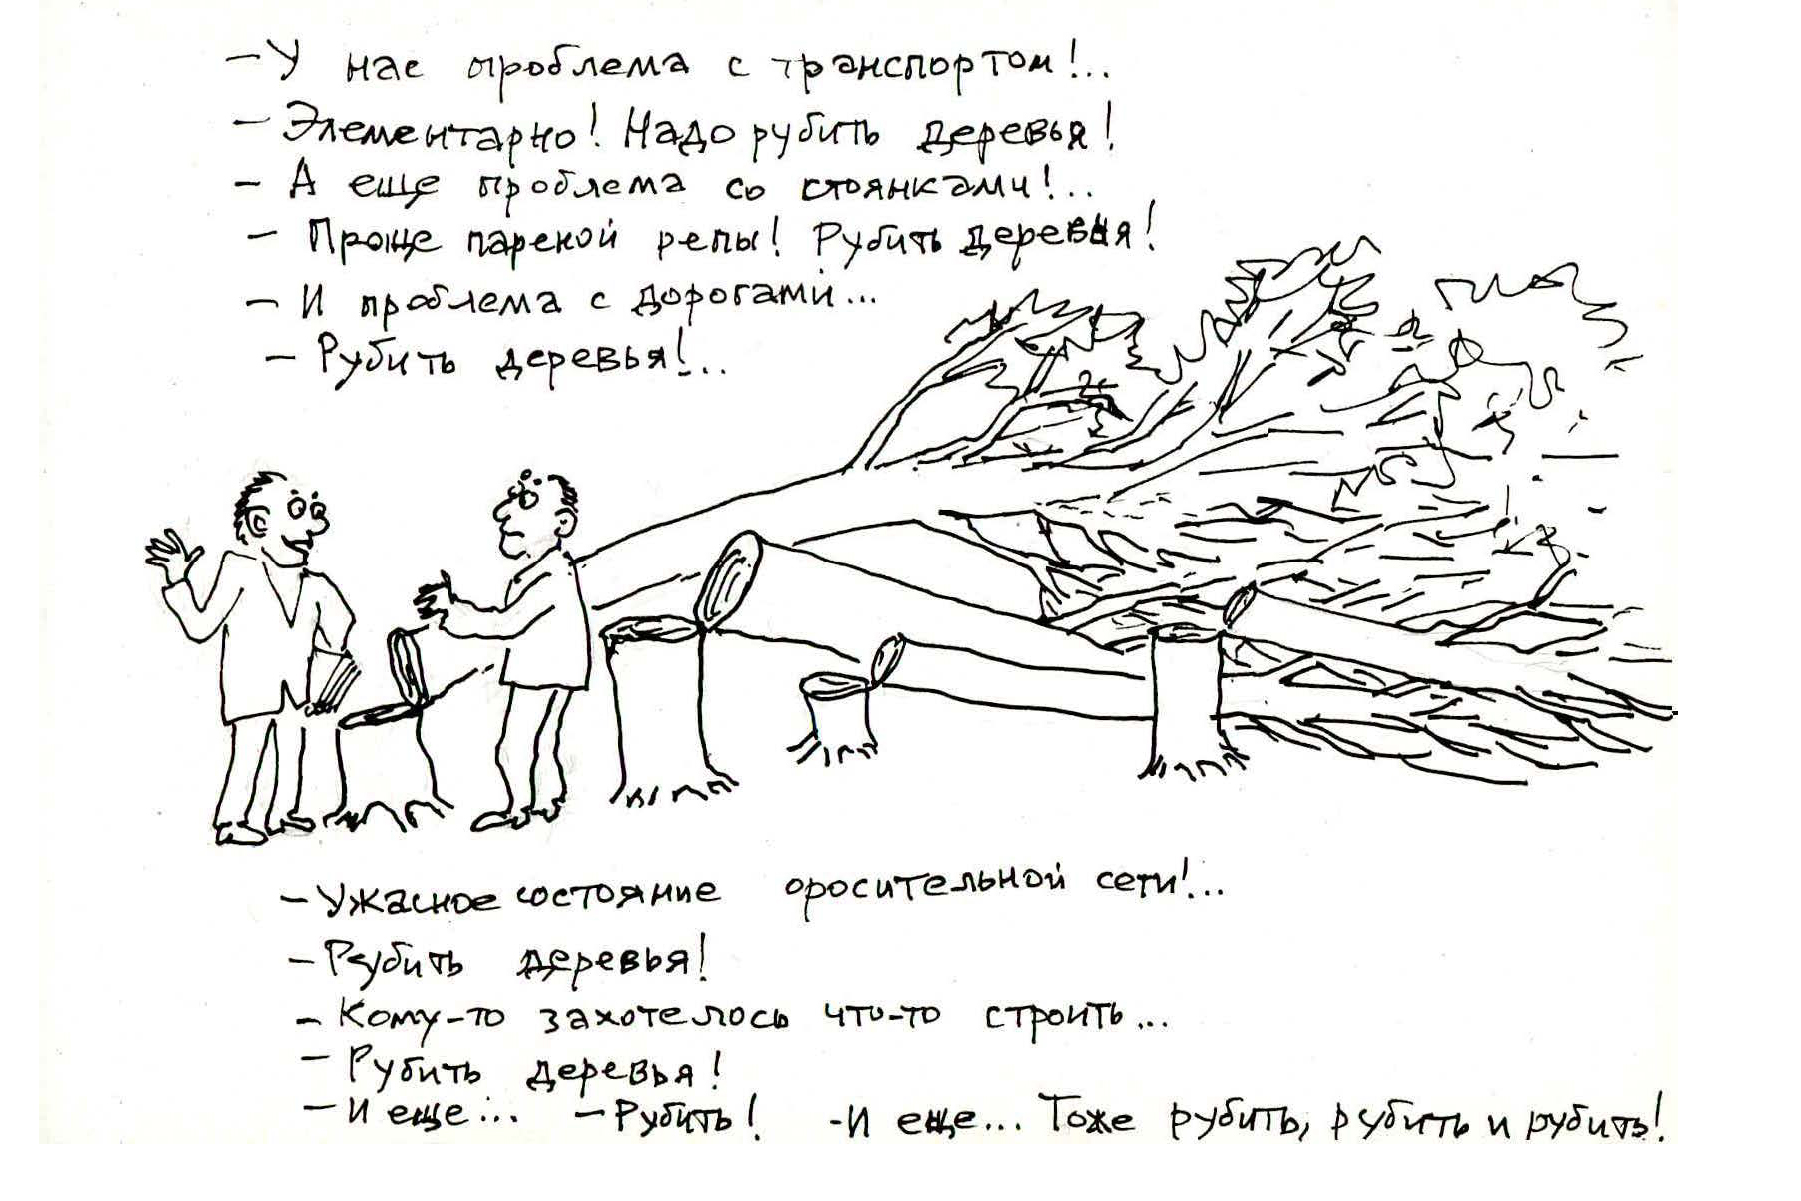 — У нас проблема с транспортом!..
— Элементарно! Надо рубить деревья!
— А еще проблема со стоянками!..
— Проще пареной репы! Рубить деревья!
— И проблема с дорогами...
— Рубить деревья!..
— Ужасное состояние оросительной сети!..
— Рубить деревья!
— Кому-то захотелось что-то строить...
— Рубить деревья!
— И еще... — Рубить! - И еще... Тоже рубить, рубить и рубить!